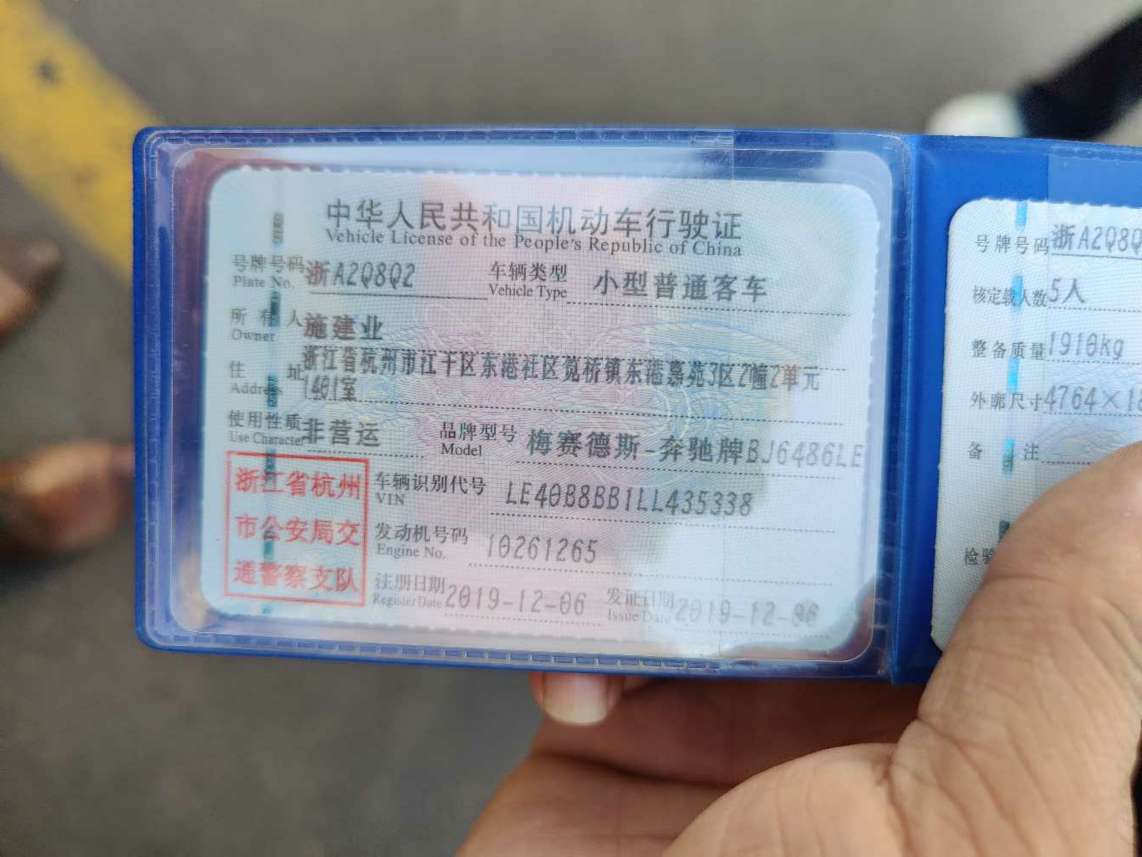 中华人民共和国机动车行驶证
Vehicle License of the People's Republic of China
号牌号码 浙A2Q8Q2 车辆类型 小型普通客车
Plate No. Vehicle Type
所有人 施建业
Owner
住址 浙江省杭州市江干区东港社区笕桥镇东港嘉苑3区2幢2单元
Address 1401室
使用性质 非营运 品牌型号 梅赛德斯-奔驰牌BJ6486LE
Use Character Model
浙江省杭州
市公安局交
通警察支队
车辆识别代号 LE40B8BB1LL435338
VIN
发动机号码 10261265
Engine No.
注册日期 2019-12-06 发证日期 2019-12-06
Register Date Issue Date
号牌号码 浙A2Q8Q
核定载人数 5人
整备质量 1910kg
外廓尺寸 4764×18
备注
检验